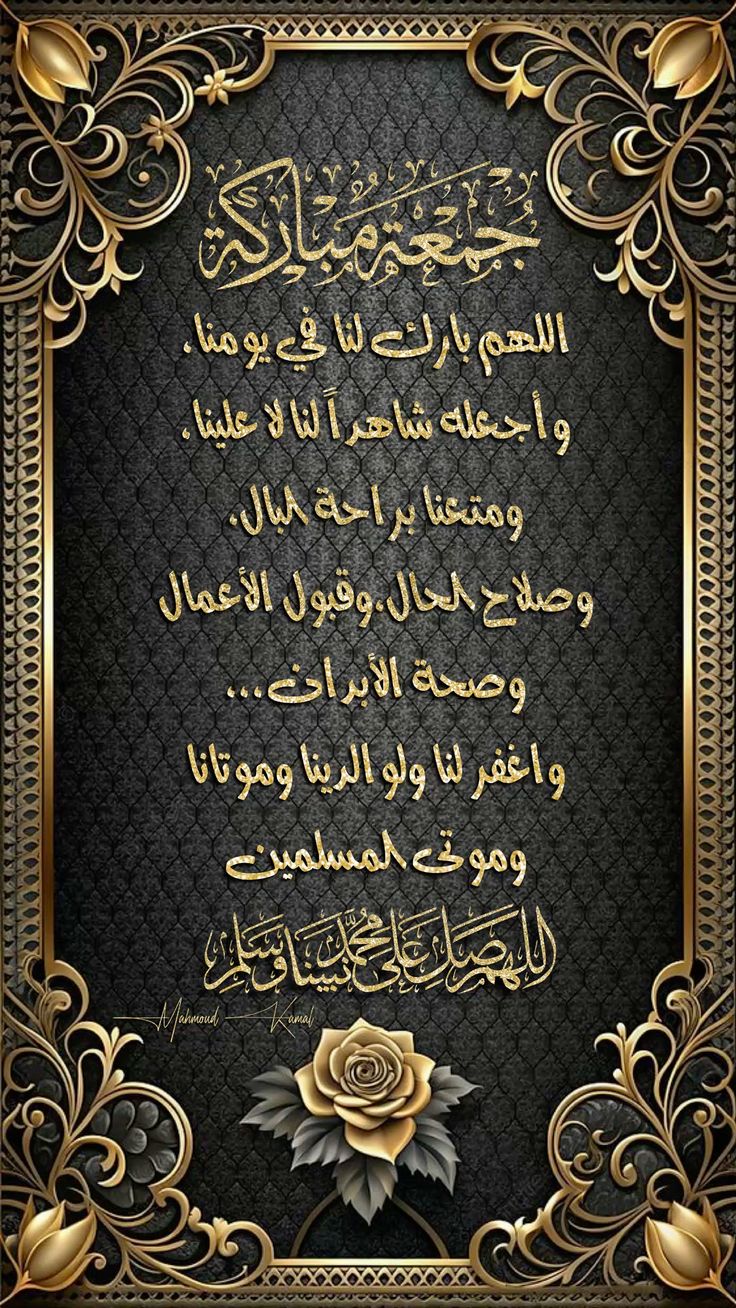 جُمعَة مُبَارَكَة
اللهم بارك لنا في يومنا،
وأجعله شاهداً لنا لا علينا،
ومتعنا براحة البال،
وصلاح الحال،وقبول الأعمال
وصحة الأبدان...
واغفر لنا ولوالدينا وموتانا
وموتى المسلمين
اللهم صل على نبينا محمد وسلم
Mahmoud Kamal